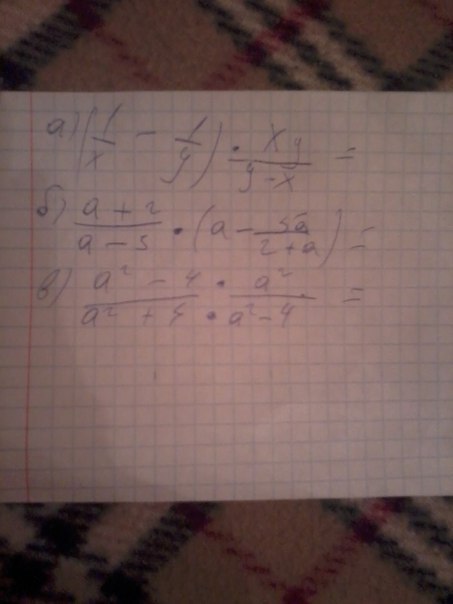 а) (1/x - 1/y) · xy/(y-x) =
б) (a+2)/(a-5) · (a - 5a/(2+a)) =
в) (a² - 4)/(a² + 5) · a²/(a²-4) =